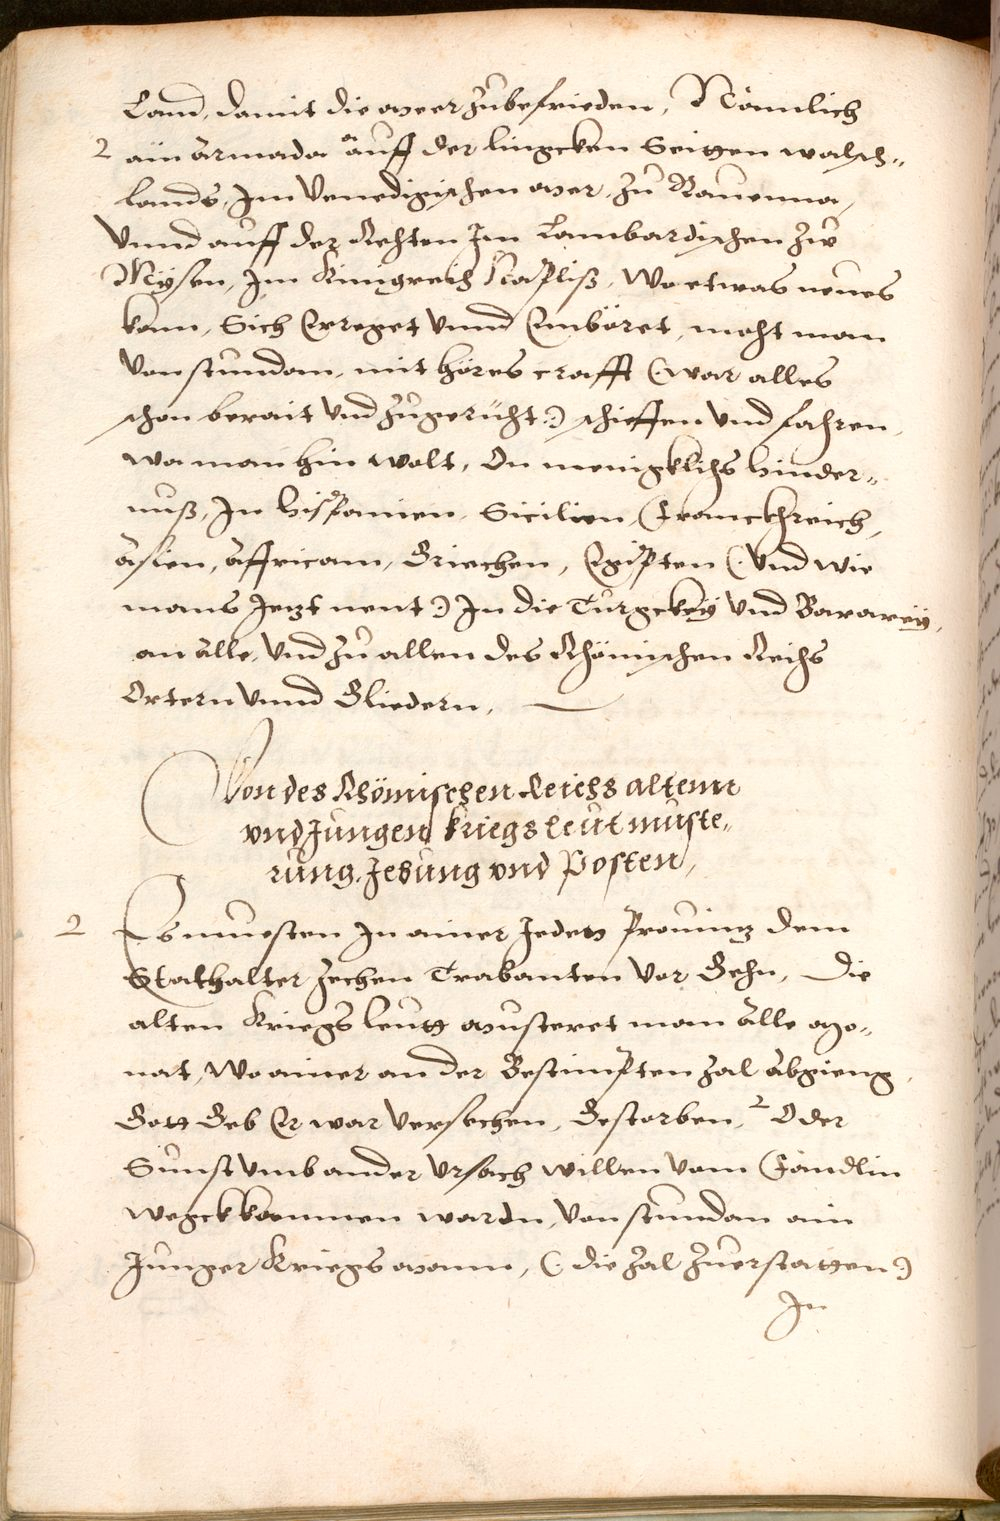 Land, damit die meer zubefrieden, Nämlich
2 ain armada auff der lingcken Seitten walsch=
lands, Im Venedigischen mer, zu Rauenna,
Vnnd auff der Rechten Im Lambardischen zw
Mysen, Im Künigreich Napliß, Wo etwas neues
kam, Sich Erreget Vnnd Emböret, mocht man
Von stundan, mit höres crafft (war alles
schon berait Vnd zugerücht:) schieffen Vnd fahren,
wa man hin wolt, On menigklichs hinder=
nuß, In hispanien, Sicilien, Franckhreich,
Asien, Affricam, Griechen, Egipten (: Vnd wie
mans Jetzt nent:) In die Turgckeÿ Vnd Barareÿ,
an alle, Vnd zu allen des Rhömischen Reichs
Ortern Vnnd Gliedern,
Von des Rhömischen Reichs alten
vnd Jungen kriegsleut muste=
rung, Jebung vnd Posten,
2 Es muesten In ainer Jeden Prouintz dem
Stathalter zechen Trabanten Vor Gehn, Die
alten Kriegs leutt musteret man alle mo=
nat, Wo ainer an der Bestimpten zal abgieng,
Gott Geb Er war Versechen, Gestorben, 2 Oder
Sunst vmb ander Vrsach willen vom Fändlin
wegckkommen wardn, Von stundan ain
Junger Kriegs mann, (: die zal zuerstatten:)
In